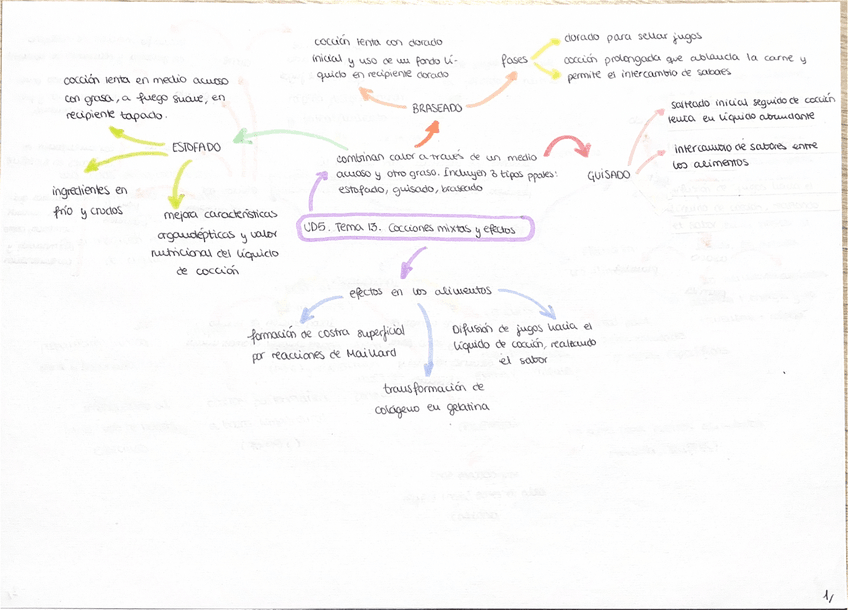 dorado para sellar jugos
cocción lenta con dorado
inicial y uso de un fondo lí-
quido en recipiente dorado
fases
cocción prolongada que ablanda la carne y
permite el intercambio de sabores
cocción lenta en medio acuoso
con grasa, a fuego suave, en
recipiente tapado.
BRASEADO
salteado inicial seguido de cocción
lenta en líquido abundante
ESTOFADO
combinan calor a través de un medio
acuoso y otro graso. Incluyen 3 tipos ppales:
estofado, guisado, braseado
GUISADO
intercambio de sabores entre
los alimentos
ingredientes en
frío y crudos
mejora características
organolépticas y valor
nutricional del líquido
de cocción
UD5. Tema 13. Cocciones mixtas y efectos
efectos en los alimentos
formación de costra superficial
por reacciones de Maillard
Difusión de jugos hacia el
líquido de cocción, realzando
el sabor
transformación de
colágeno en gelatina
1/